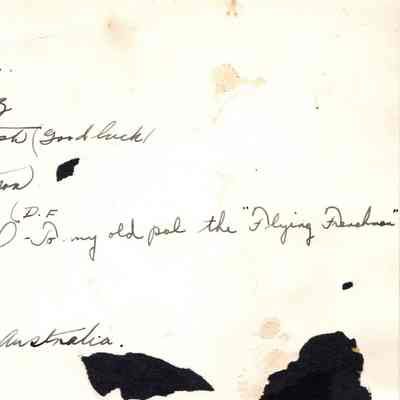 (Good luck)
(D.F
- To my old pal the "Flying Frenchman"
Australia.